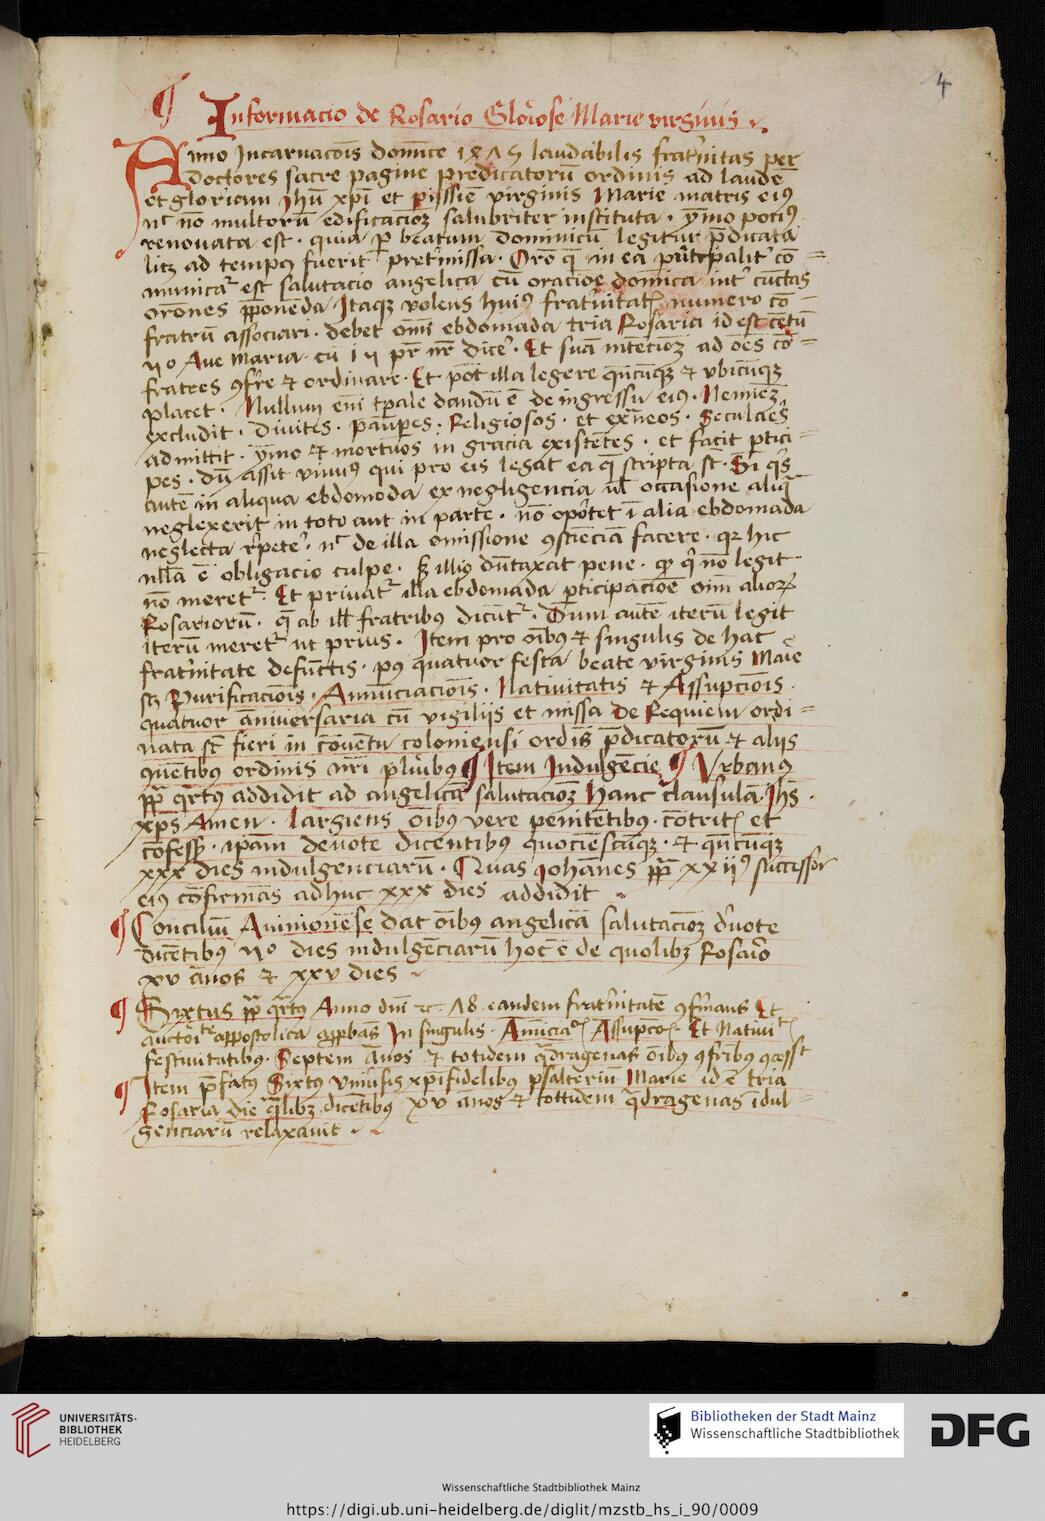 4
¶ Informacio de Rosario Gloiose Marie virginis
Anno Incarnacois domice 1475 laudabilis frat'nitas per
doctores sacre pagine predicatoru ordinis ad laude
et gloriam Jhu xpi et piissie virginis Marie matris ei9
nc no multoru edificacioz salubriter instituta · ymo poci9
renouata est · quia p beatum dominicu legitur pdicata
litz ad temp9 fuerit pretmissa · Oro q in ea pricipalit' co=
municat' est salutacio angelica cu oracioe domica int' cunctas
orones pponenda Itaqz volens hui9 frat'nitatis numero co=
fratru associari · debet omi ebdomada tria Rosaria id est centu
no Aue Maria · cu 1 pr nr dice' · Et sua intecioz ad oes co=
fratres 9f're et ordinare · Et pot illa legere qncuqz et vbicuqz
placet · Nullum eni tpale dandu e de ingressu ei9 · Neminez
excludit · diuites · paupes · Religiosos · et extneos · Seculaes
admittit · ymo et mortuos in gracia existetes · et facit ptici=
pes · du assit viuus qui pro eis legat ea q scripta st · Si q's
aute in aliqua ebdomoda ex negligencia ul occasione aliq
neglexerit in toto aut in parte · no oportet i alia ebdomada
neglecta r'pete' · nc de illa omissione 9sciencia facere · qz hic
nlla e obligacio culpe · sz illi9 duntaxat pene · q q' no legit
no meret' · Et priuat' illa ebdomada pticipacioe oim alioz
Rosarioru · q ab ill fratrib9 dicut' · Dum aute iteru legit
iteru meret' ut prius · Item pro oib9 et singulis de hac
frat'nitate defunctis · p9 quatuor festa beate virginis Maie
sz Purificaciois · Annunciaciois · Natiuitatis et Assupciois ·
quatuor aniuersaria cu vigiliis et missa de Requiem ordi=
nata st fieri in conuentu coloniensi ordis pdicatoru et aliis
quentib9 ordinis nri plurib9 ¶ Item Indulgecie ¶ Vrban9
pp qrt9 addidit ad angelica salutacioz hanc clausula · Jhs ·
xps Amen · largiens oib9 vere penitetib9 · cotrit et
cofess · ipam deuote dicentib9 quociescuqz · et qncuqz
xxx dies indulgenciaru · Quas Johanes pp xxii9 successor
ei9 cofirmas adhuc xxx dies addidit
¶ Conciliu Auinionese dat oib9 angelica salutacioz d'uote
dicetib9 no dies indulgeciaru hoc e de quolibz Rosaio
xv anos et xxv dies
¶ Sixtus pp qrt9 Anno dni 78 eandem frat'nitate 9f'mans Et
auctoite appostolica appbas In singulis · Anuciac Assupco · Et Natiuit
festiuitatib9 · Septem anos et totidem qdragenas oib9 9frib9 9cesst
¶ Item pfat9 Sixt9 vniu'sis xpifidelib9 psalteriu Marie id e tria
Rosaria die qlibz dicetib9 xv anos et tottidem qdragenas idul=
genciaru relaxauit
UNIVERSITÄTS-
BIBLIOTHEK
HEIDELBERG
Bibliotheken der Stadt Mainz
Wissenschaftliche Stadtbibliothek
DFG
Wissenschaftliche Stadtbibliothek Mainz
https://digi.ub.uni-heidelberg.de/diglit/mzstb_hs_i_90/0009